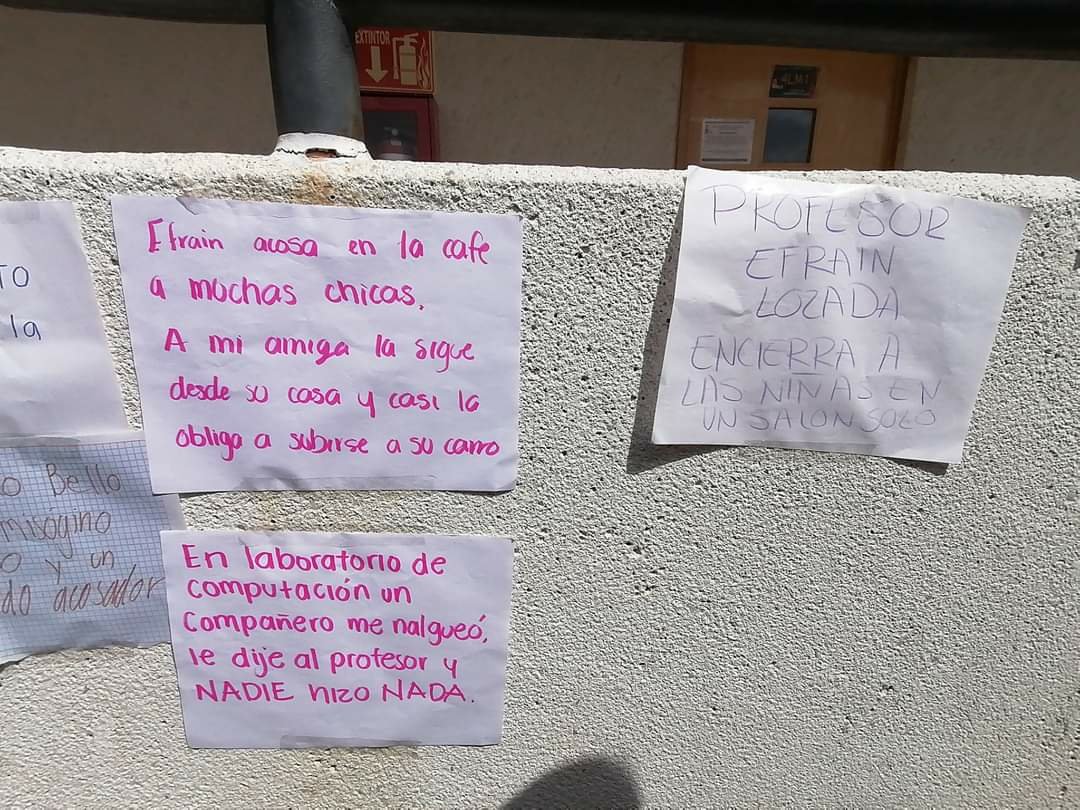 EXTINTOR
TO
la
Efrain acosa en la cafe
a muchas chicas.
A mi amiga la sigue
desde su casa y casi la
obliga a subirse a su carro
PROFESOR
EFRAIN
LOZADA
ENCIERRA A
LAS NIÑAS EN
UN SALON SOLO
o Bello
misógino
o y un
do acosador
En laboratorio de
computación un
compañero me nalgueó,
le dije al profesor y
NADIE hizo NADA.